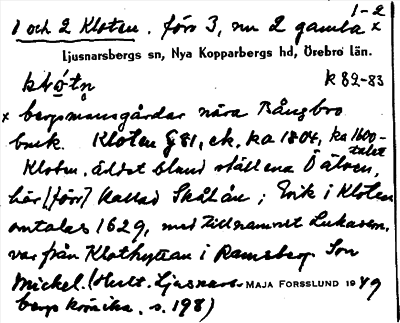 1-2
1 och 2 Kloten. förr 3, nu 2 gamla x
Ljusnarsbergs sn, Nya Kopparbergs hd, Örebro län.
k 82-83
x bergsmansgårdar nära Bångbro
bruk. Kloten G 81, ek, ka 1804, ka 1600-
talet
Kloten. äldst bland ställena Ö älven,
här [förr] kallad Skålån; Erik i Kloten
omtalas 1629, med tillnamnet
var från Klothyttan i Ramsberg. Son
Mickel. (Hult. Ljusnars-
MAJA FORSSLUND 1949
bergs krönika. s. 198)